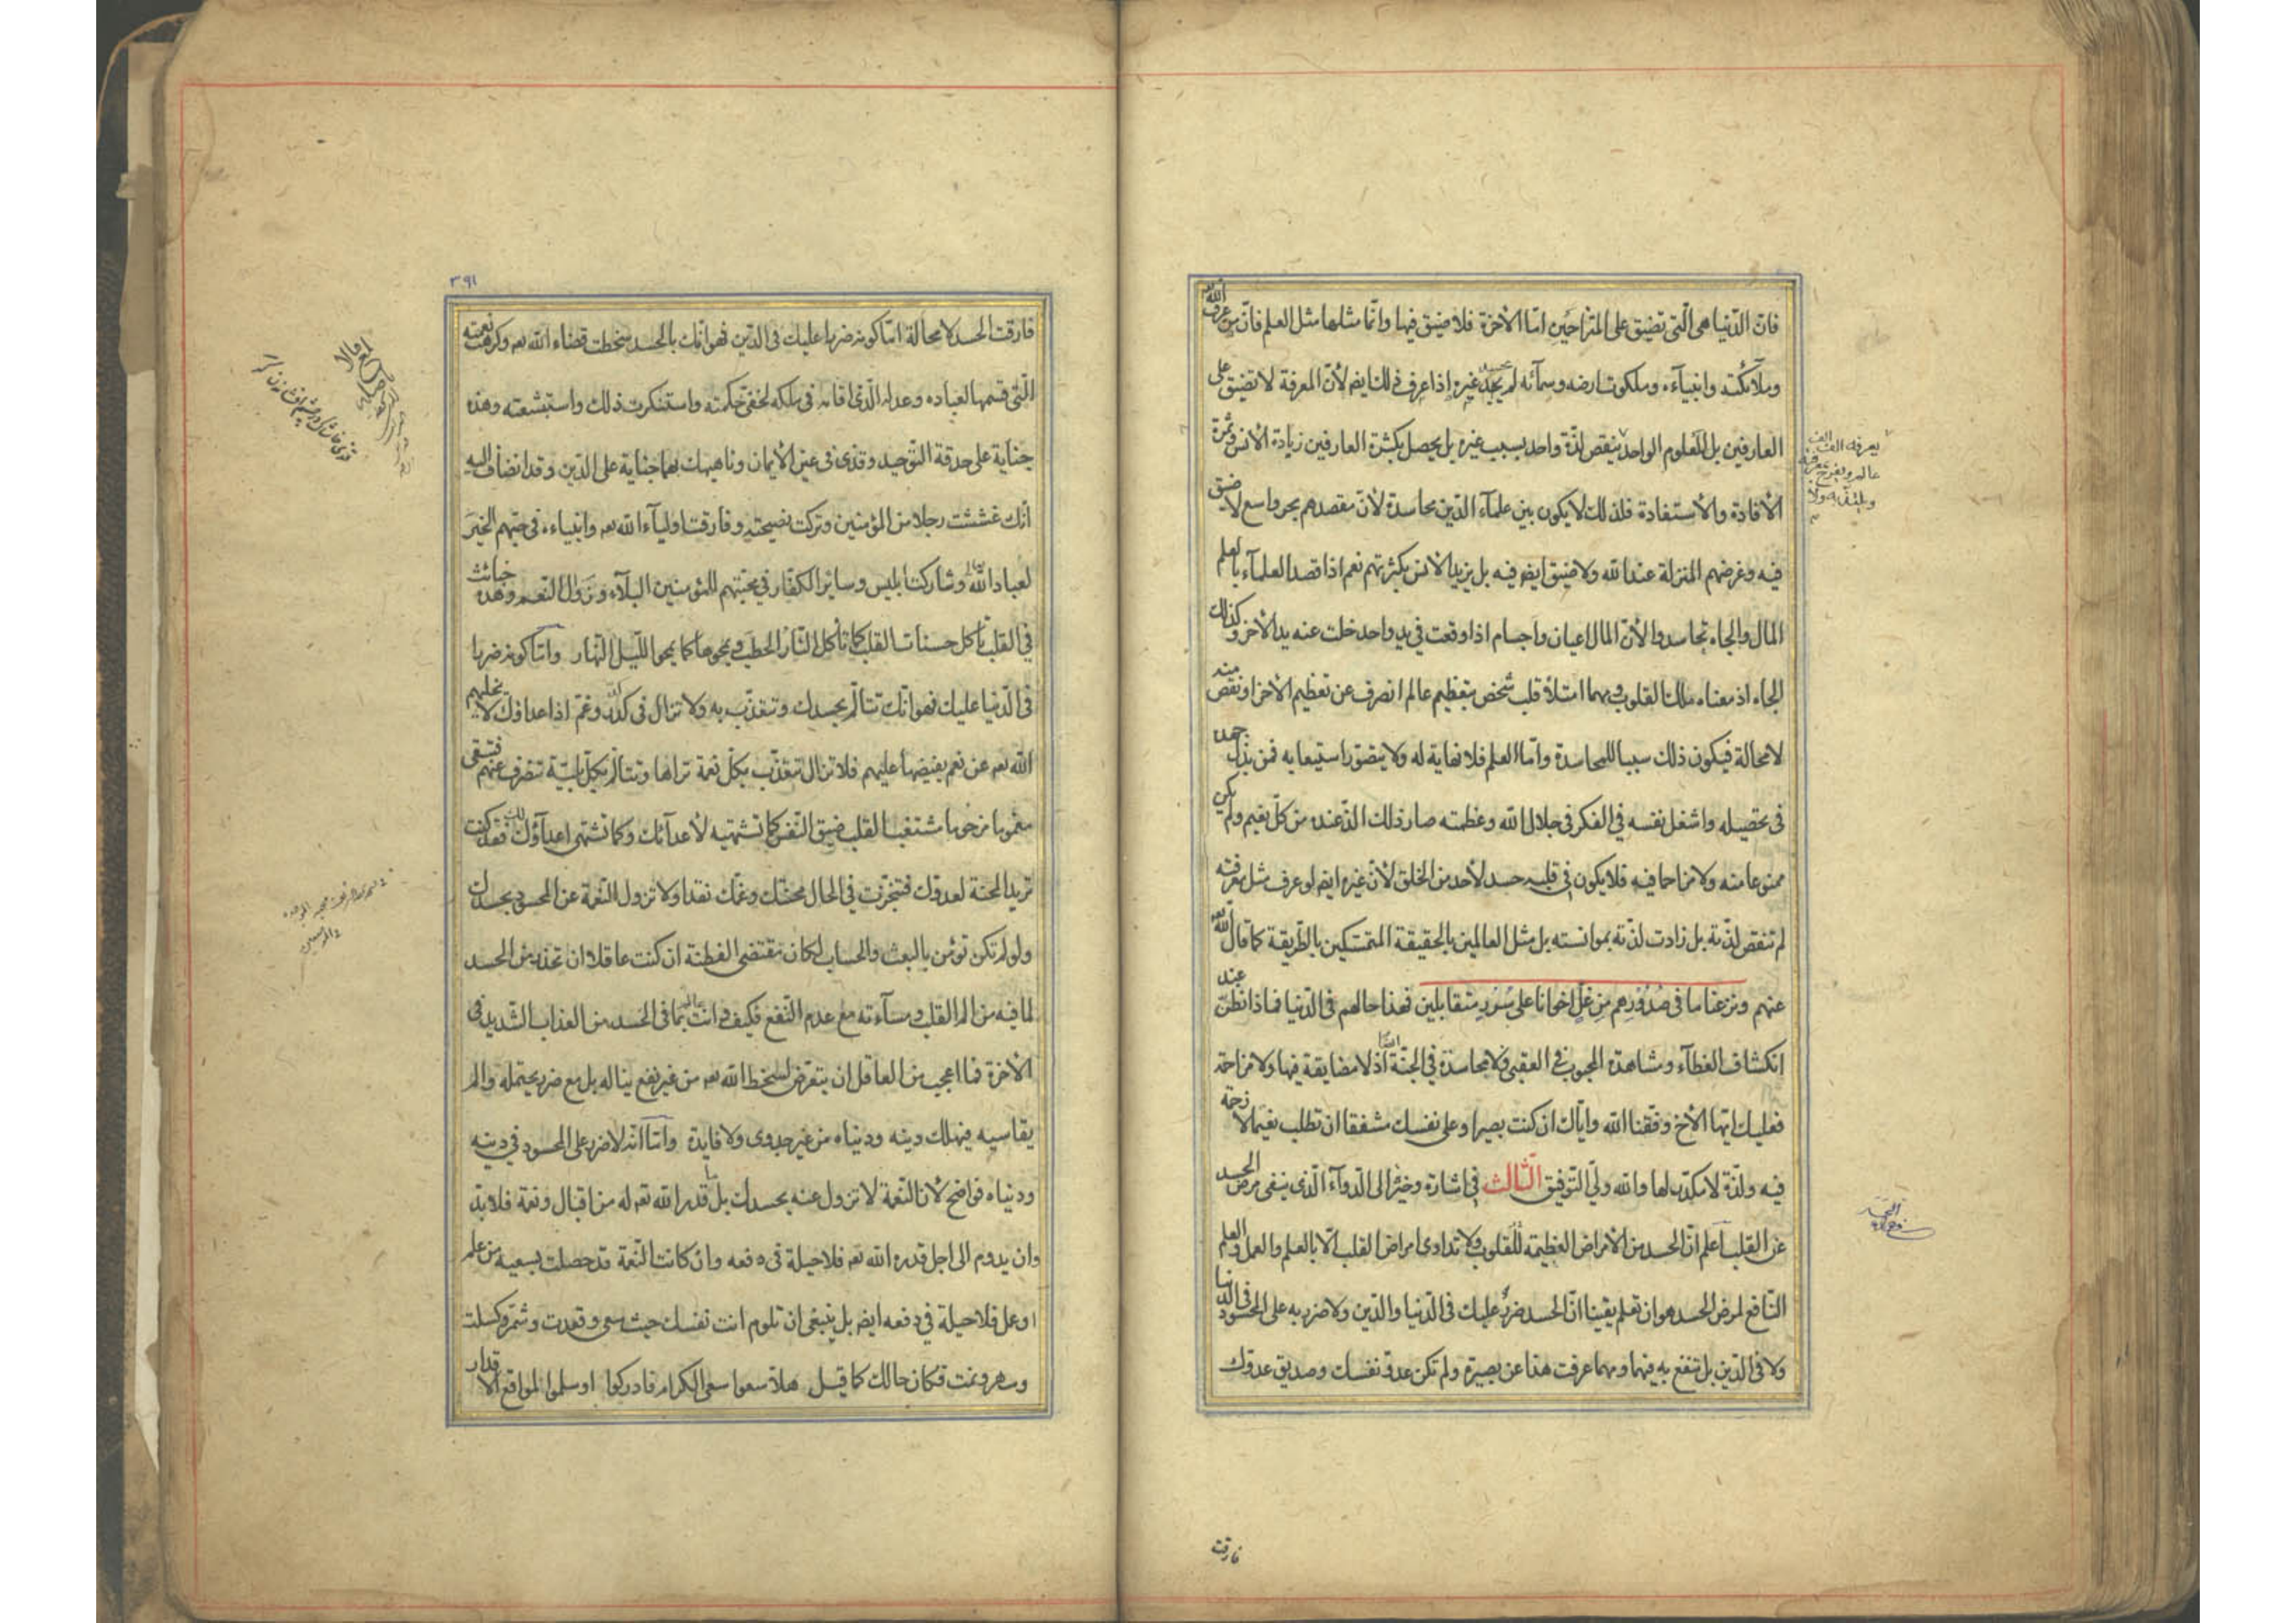 فانّ الدّنيا هى الّتى تضيق على المتزاحمين امّا الأخرة فلا ضيق فيها وانّما مثلها مثل العلم فانّ من عرف الله
وملآئكته وانبيآءه وملكوت ارضه وسمآئه لم يحسد غيره إذا عرف ذلك ايضا لأنّ المعرفة لا تضيق على
العارفين بل المعلوم الواحد ينقص لذّة واحد بسبب غيره بل يحصل بكثرة العارفين زيادة الأنس وثمرة
يعرفه الف الف
عالم ويفرح بمعرفته
ويلتذّ به ولا
الأفادة والأستفادة فلذلك لا يكون بين علمآء الدّين محاسدة لأنّ مقصدهم بحر واسع لا ضيق
فيه وغرضهم المنزلة عند الله ولا ضيق ايضا فيه بل يزيد الأنس بكثرتهم نعم اذا قصد العلمآء بالعلم
المال والجاه تحاسدوا لأنّ المال اعيان واجسام اذا وقعت فى يد واحد خلت عنه يد الأخر وكذلك
الجاه اذ معناه ملك القلوب ومهما امتلأ قلب شخص بتعظيم عالم انصرف عن تعظيم الأخر او نقص منه
لا محالة فيكون ذلك سببا للمحاسدة وامّا العلم فلا نهاية له ولا يتصوّر استيعابه فمن بذل جهده
فى تحصيله واشغل نفسه فى الفكر فى جلال الله وعظمته صار ذلك الذّ عنده من كلّ نعيم ولم يكن
ممنوعا منه ولا مزاحما فيه فلا يكون فى قلبه حسد لأحد من الخلق لأنّ غيره ايضا لو عرف مثل معرفته
لم تنقص لذّته بل زادت لذّته بموانسته بل مثل العالمين بالحقيقة المتمسّكين بالطّريقة كما قال الله
عنهم ونزعنا ما فى صُدُورِهم مِن غِلٍّ اخوانا على سُرُرٍ متقابلين فهذا حالهم فى الدّنيا فماذا تظنّ عند
انكشاف الغطآء ومشاهدة المحبوب فى العقبى فلا محاسدة فى الجنّة اذ لا مضايقة فيها ولا مزاحمة
فعليك ايّها الأخ وفّقنا الله وايّاك ان كنت بصيرا وعلى نفسك مشفقا ان تطلب نعيما لا زحمة
فيه ولذّة لا مكدّر لها والله ولىّ التّوفيق الثّالث فى اشارة وخيزة الى الدّوآء الّذى ينفى مرض الحسد
عن القلب اعلم انّ الحسد من الأمراض العظيمة للقلوب ولا تداوى امراض القلب الّا بالعلم والعمل والعلم
النّافع لمرض الحسد هو ان تعلم يقينا انّ الحسد ضرر عليك فى الدّنيا والدّين ولا ضرر به على المحسود فى الدّنيا
ولا فى الدّين بل تنفع به فيهما ومهما عرفت هذا عن بصيرة ولم تكن عدوّ نفسك وصديق عدوّك
فارقت
٣٩١
فارقت الحسد لا محالة امّا كونه ضررا عليك فى الدّين فهو انّك بالحسد سخطت قضاء الله تعه وكرهت نعمته
الّتى قسمها لعباده وعدله الّذى اقامه فى ملكه لخفىّ حكمته واستنكرت ذلك واستبشعته وهذه
جناية على حدقة التّوحيد وقذى فى عين الأيمان وناهيك بها جناية على الدّين وقد انضاف اليه
أنّك غششت رجلا من المؤمنين وتركت نصيحته وفارقت اوليآء الله تعه وانبياءه فى حبّهم الخيرَ
لعباد الله وشاركت ابليس وساير الكفّار فى محبّتهم للمؤمنين البلآء وزوال النّعم وهذه خبائث
فى القلب تأكل حسنات القلب كما تأكل النّار الحطب ويمحوها كما يمحوا اللّيل النّهار وامّا كونه ضررا
فى الدّنيا عليك فهو انّك تتألّم بحسدك وتتعذّب به ولا تزال فى كدر وغمّ اذ اعداؤك لا يخليهم
الله تعه عن نعم يفيضها عليهم فلا تزال تتعذّب بكلّ نعمة تراها وتتألّم بكلّ بليّة تنصرف عنهم فتبقى
مغموما محزونا متشعّب القلب ضيق النّفس كما تشتهيه لأعدآئك وكما تشتهى اعدآؤك لك فقد كنت
تريد المحنة لعدوّك فتنجّزت فى الحال محنتك وغمّك نقدا ولا تزول النّعمة عن المحسود بحسدك
ولو لم تكن تؤمن بالبعث والحساب لكان مقتضى الفطنة ان كنت عاقلا ان تحذر من الحسد
لما فيه من الم القلب ومسآءته مع عدم النّفع فكيف وانت عالم بما فى الحسد من العذاب الشّديد فى
الأخرة فما اعجب من العاقل ان يتعرّض لسخط الله تعه من غير نفع يناله بل مع ضرر يحتمله والم
يقاسيه فيهلك دينه ودنياه من غير جدوى ولا فايدة وامّا انّه لا ضرر على المحسود فى دينه
ودنياه فواضح لأنّ النّعمة لا تزول عنه بحسدك بل ما قدر الله تعه له من اقبال ونعمة فلا بدّ
وان يدوم الى اجل قدره الله تعه فلا حيلة فى دفعه وان كانت النّعمة قد حصلت بسعيه من علم
او عمل فلا حيلة فى دفعه ايضا بل ينبغى ان تلوم انت نفسك حيث سعى وقعدت وشمّر وكسلت
وسهر ونمت فكان حالك كما قيل هلّا سعوا سعى الكرام فادركوا او سلّموا لمواقع الأقدار